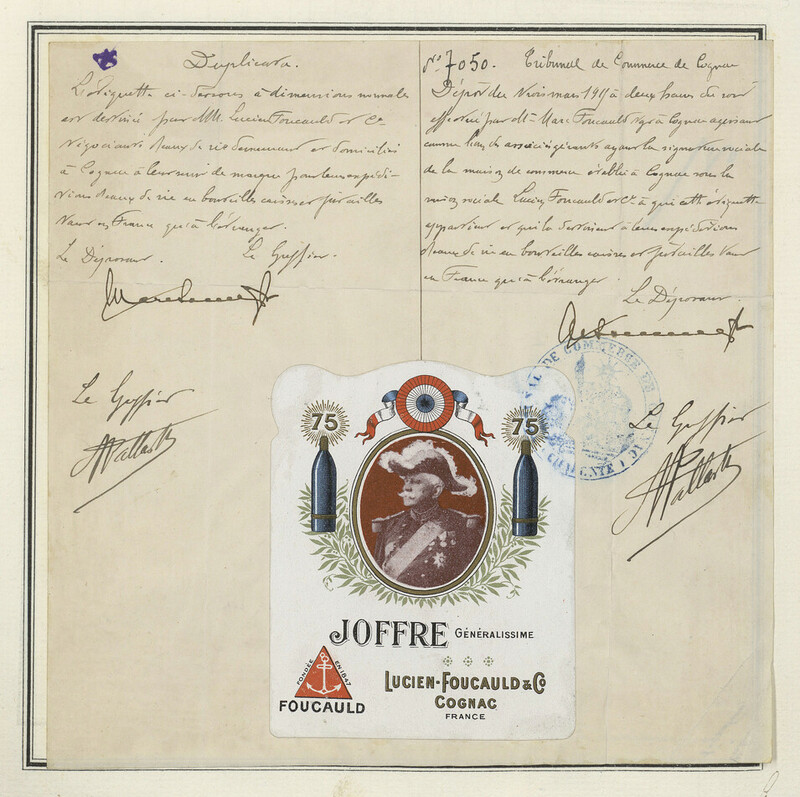 Duplicata.
L'étiquette ci-dessous à dimensions normales
est destinée par MM. Lucien Foucauld et Cie
négociants en eaux de vie demeurant et domiciliés
à Cognac à leur servir de marque pour leurs expédi-
tions d'eaux de vie en bouteilles caisses et futailles
tant en France qu'à l'étranger.
Le Déposant. Le Greffier.
Le Greffier
No 7050. Tribunal de Commerce de Cognac
Dépôt du trois mars 1915 à deux heures du soir
effectué par M. Marc Foucauld Ngt à Cognac agissant
comme l'un des associés gérants ayant la signature sociale
de la maison de commerce établie à Cognac sous la
raison sociale Lucien Foucauld et Cie à qui cette étiquette
appartient et qui la destinent à leurs expéditions
d'eaux de vie en bouteilles caisses et futailles tant
en France qu'à l'étranger.
Le Déposant.
Le Greffier
DE COMMERCE DE
75
75
JOFFRE GÉNÉRALISSIME
FONDÉE EN 1847
FOUCAULD
LUCIEN-FOUCAULD & Co
COGNAC
FRANCE